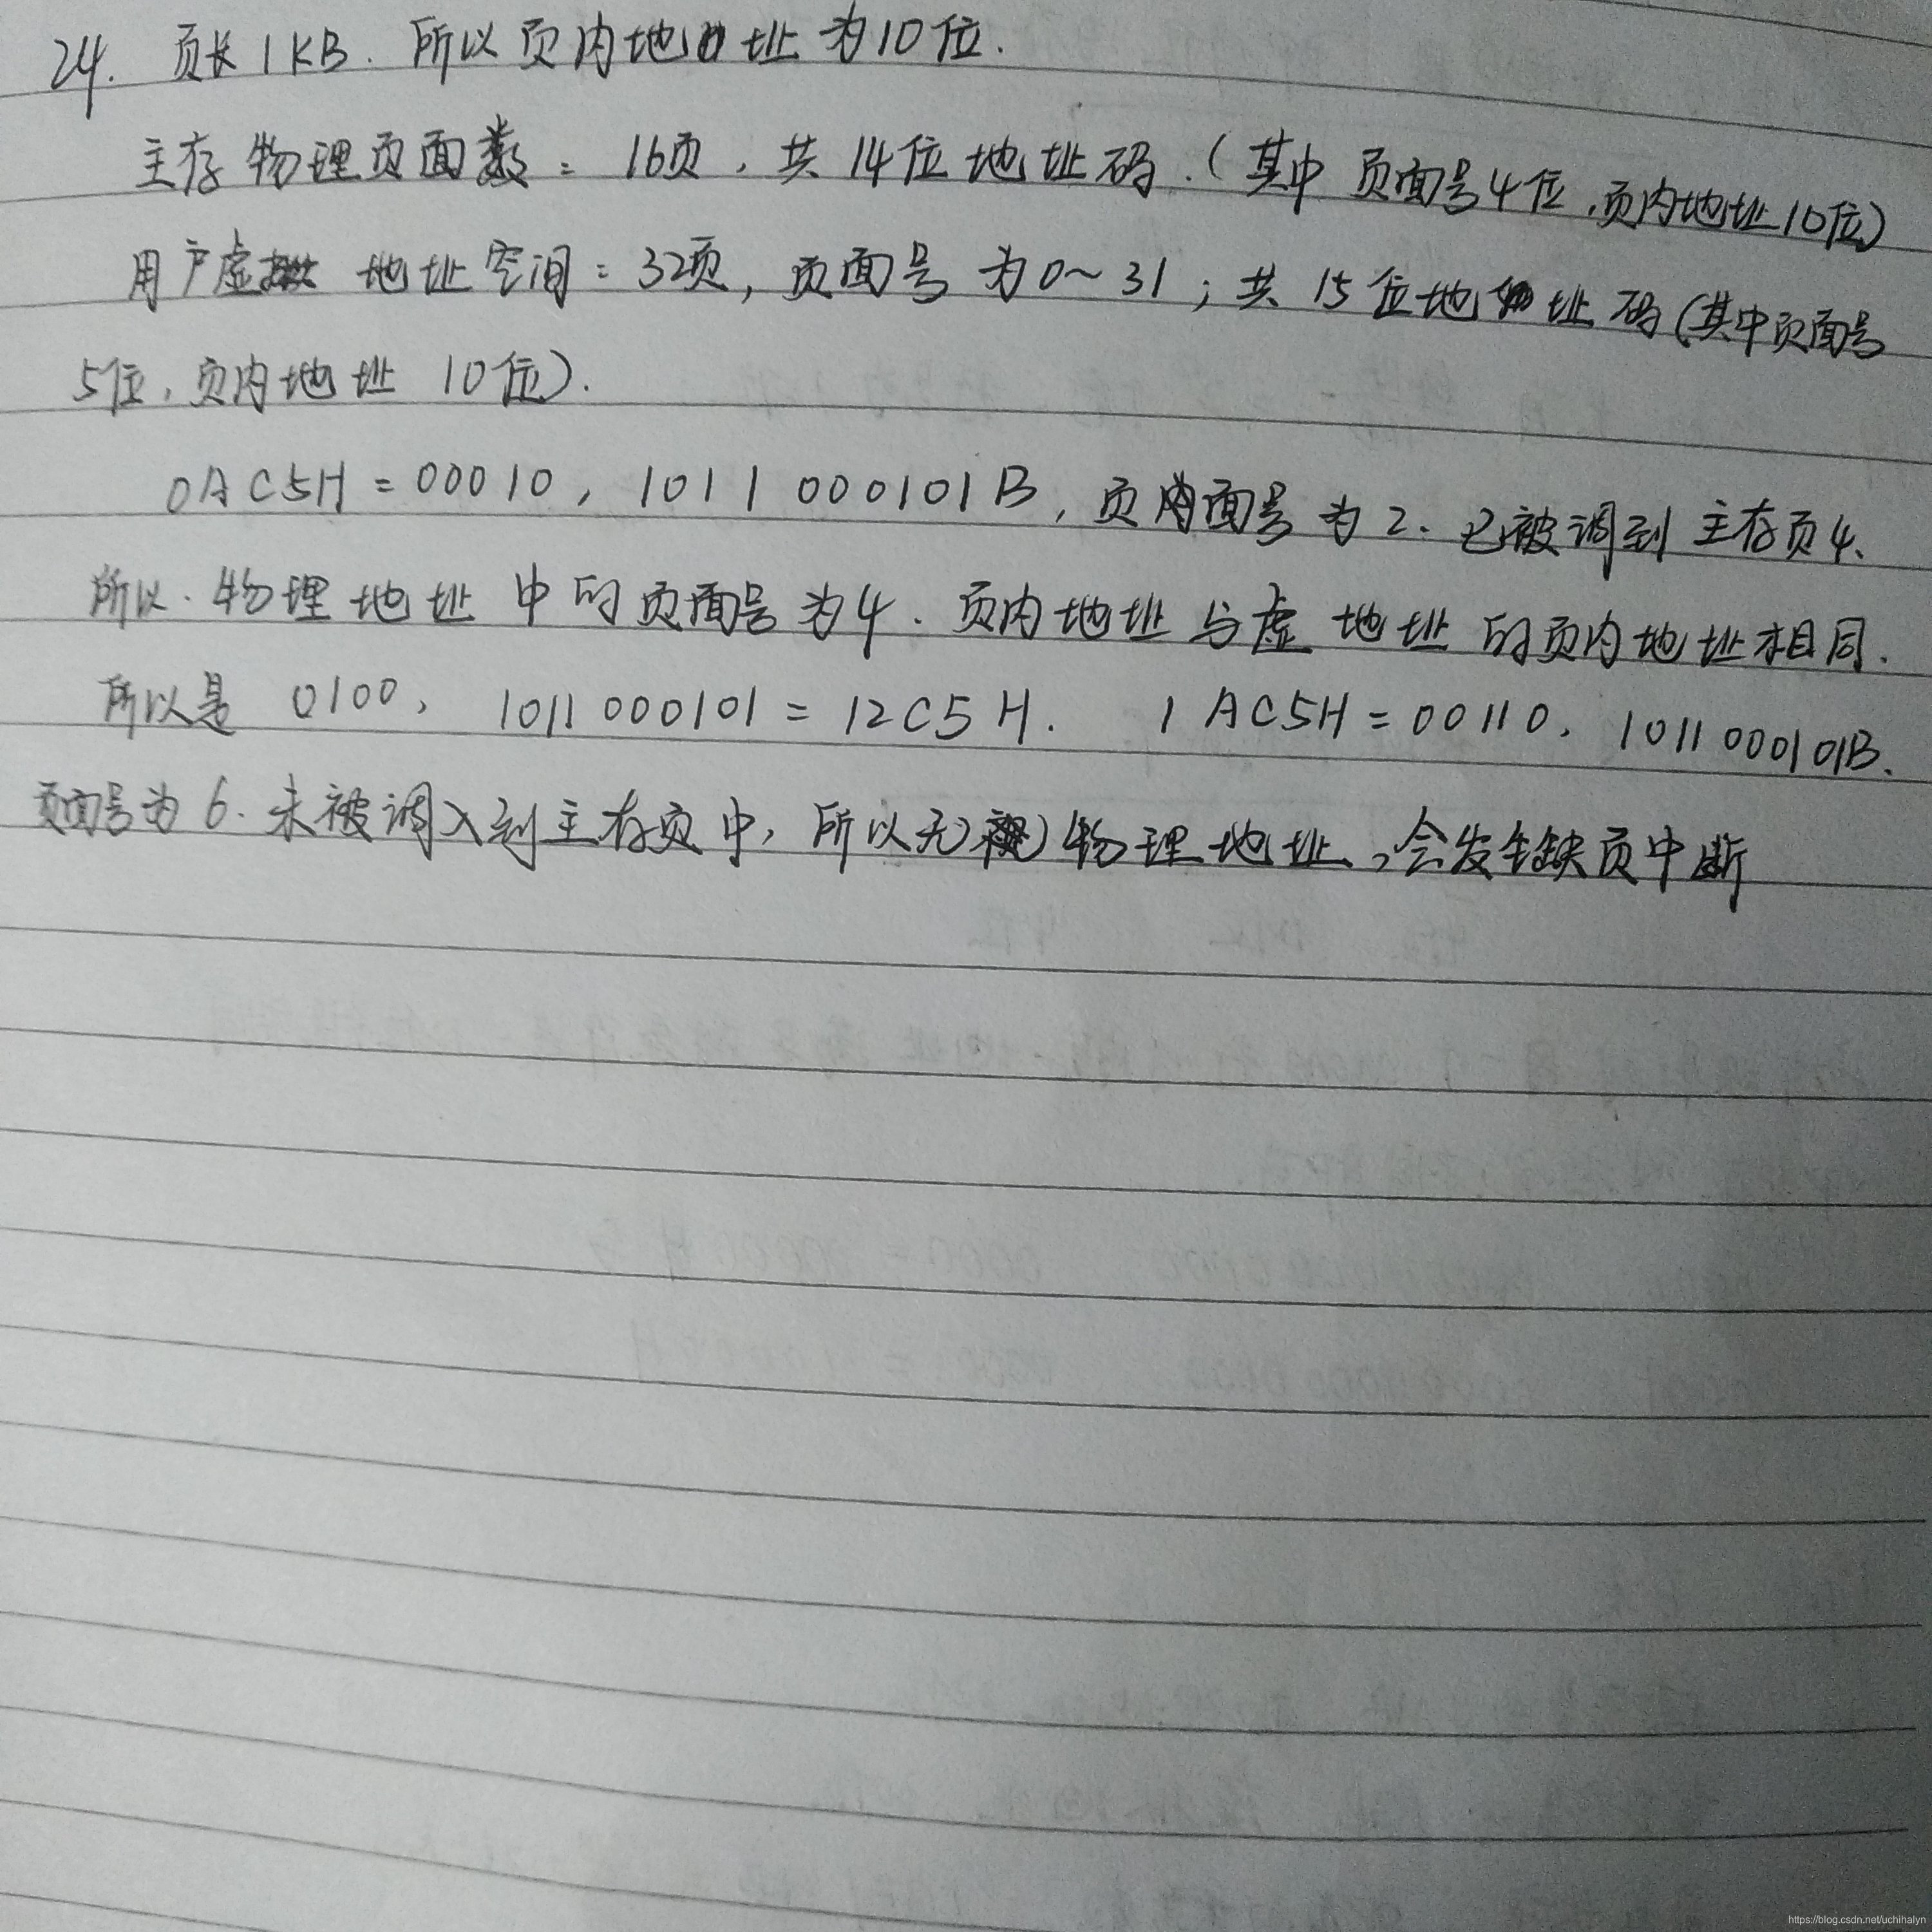 24. 页长1KB. 所以页内地址为10位.
主存物理页面数: 16页, 共14位地址码.(其中页面号4位,页内地址10位)
用户虚地址空间: 32页, 页面号为0~31; 共15位地址码(其中页面号
5位, 页内地址 10位).
0AC5H = 00010, 1011 000101B, 页面号为2. 已被调到主存页4.
所以. 物理地址中的页面号为4. 页内地址与虚地址的页内地址相同.
所以是 0100, 1011 000101 = 12C5H. 1AC5H = 00110, 1011 000101B.
页面号为6. 未被调入到主存页中, 所以无物理地址,会发生缺页中断
https://blog.csdn.net/uchihalyn